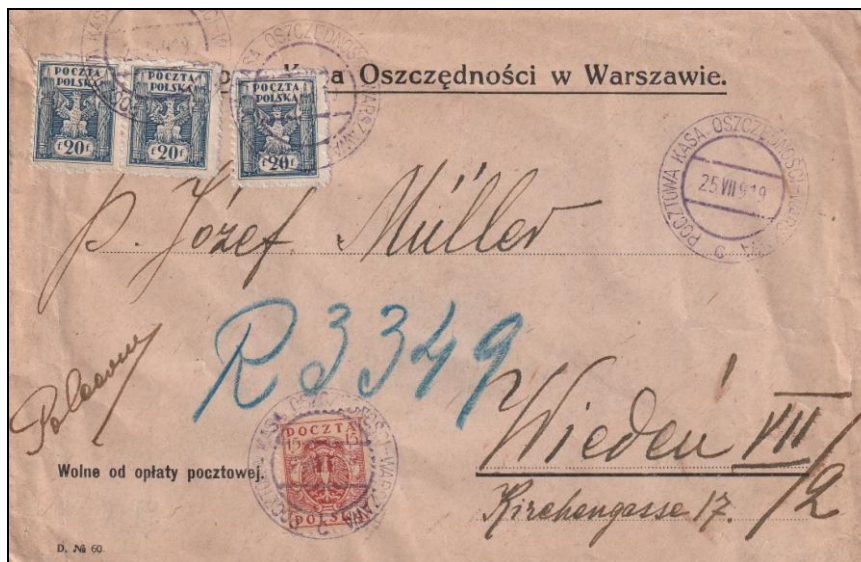 Kasa Oszczędności w Warszawie.
POCZTA POLSKA
20f
POCZTA POLSKA
20f
POCZTA POLSKA
20f
KASA OSZCZĘDNOŚCI
POCZTOWA KASA OSZCZĘDNOŚCI-WARSZAWA
25 VII 919
p. Józef Müller
R 3349
Polecony
Wiedeń VII/2
Kirchengasse 17.
Wolne od opłaty pocztowej.
POCZTA
15 15
POLSKA
D. № 60.